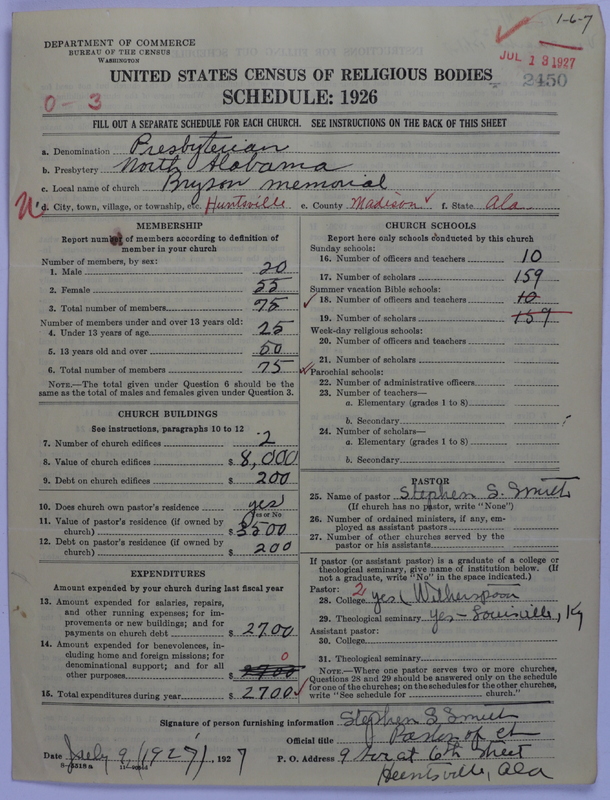 1-6-7
DEPARTMENT OF COMMERCE
BUREAU OF THE CENSUS
WASHINGTON
JUL 13 1927
2450
UNITED STATES CENSUS OF RELIGIOUS BODIES
SCHEDULE: 1926
0-3
FILL OUT A SEPARATE SCHEDULE FOR EACH CHURCH. SEE INSTRUCTIONS ON THE BACK OF THIS SHEET
a. Denomination Presbyterian
b. Presbytery North Alabama
c. Local name of church Bryson memorial
d. City, town, village, or township, etc. Huntsville e. County Madison f. State Ala
MEMBERSHIP
Report number of members according to definition of
member in your church
Number of members, by sex:
1. Male 20
2. Female 55
3. Total number of members 75
Number of members under and over 13 years old:
4. Under 13 years of age 25
5. 13 years old and over 50
6. Total number of members 75
NOTE.—The total given under Question 6 should be the
same as the total of males and females given under Question 3.
CHURCH BUILDINGS
See instructions, paragraphs 10 to 12
7. Number of church edifices 2
8. Value of church edifices $ 8,000
9. Debt on church edifices $ 200
10. Does church own pastor's residence? yes
Yes or No
11. Value of pastor's residence (if owned by
church) $ 3500
12. Debt on pastor's residence (if owned by
church) $ 200
EXPENDITURES
Amount expended by your church during last fiscal year
13. Amount expended for salaries, repairs,
and other running expenses; for im-
provements or new buildings; and for
payments on church debt $ 2700
14. Amount expended for benevolences, in-
cluding home and foreign missions; for
denominational support; and for all 0
other purposes $ 2700
15. Total expenditures during year $ 2700
CHURCH SCHOOLS
Report here only schools conducted by this church
Sunday schools:
16. Number of officers and teachers 10
17. Number of scholars 159
Summer vacation Bible schools:
18. Number of officers and teachers 10
19. Number of scholars 159
Week-day religious schools:
20. Number of officers and teachers
21. Number of scholars
Parochial schools:
22. Number of administrative officers
23. Number of teachers—
a. Elementary (grades 1 to 8)
b. Secondary
24. Number of scholars—
a. Elementary (grades 1 to 8)
b. Secondary
PASTOR
25. Name of pastor Stephen S. Smith
(If church has no pastor, write "None")
26. Number of ordained ministers, if any, em-
ployed as assistant pastors
27. Number of other churches served by the
pastor or his assistants
If pastor (or assistant pastor) is a graduate of a college or
theological seminary, give name of institution below. (If
not a graduate, write "No" in the space indicated.)
Pastor: 2
28. College yes (Witherspoon
29. Theological seminary yes - Louisville, Ky
Assistant pastor:
30. College
31. Theological seminary
NOTE.—Where one pastor serves two or more churches,
Questions 28 and 29 should be answered only on the schedule
for one of the churches; on the schedules for the other churches,
write "See schedule for church."
Signature of person furnishing information Stephen S. Smith
Official title Pastor of Ch
Date July 9 (1927), 1927 P. O. Address 9 Ave at 6th Street
Huntsville, Ala